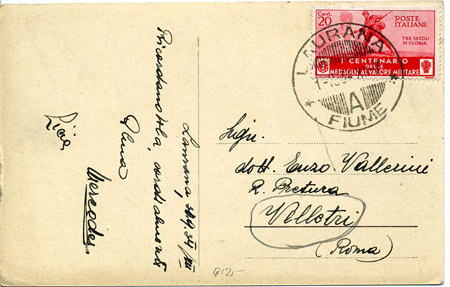 Cent. 20
POSTE ITALIANE
TRE SECOLI DI GLORIA
1° CENTENARIO
DELLE
MEDAGLIE AL VALORE MILITARE
LAURANA
A
FIUME
Laurana,
Ricordandola, cordialmente
Mercedes
Sign.
dott. Enzo Vallerini
R. Pretura
Velletri
(Roma)